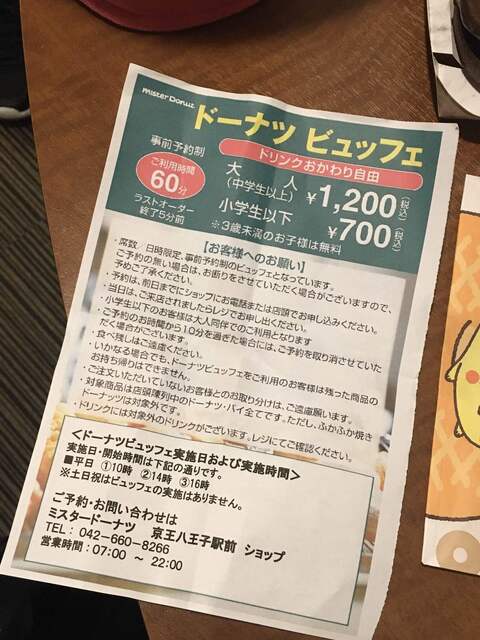 mister Donut
ドーナツ ビュッフェ
事前予約制
ドリンクおかわり自由
ご利用時間
60分
大人
(中学生以上)
¥1,200(税込)
ラストオーダー
終了5分前
小学生以下
¥700(税込)
※3歳未満のお子様は無料
【お客様へのお願い】
・席数／日時限定、事前予約制のビュッフェとなっています。
ご予約の無い場合は、お断りをさせていただく場合がございますので、
予めご了承ください。
・予約は、前日までにショップにお電話または店頭でお申し込みください。
当日は、ご来店されましたらレジでお申し出ください。
・小学生以下のお客様は大人同伴でのご利用となります
・ご予約のお時間から10分を過ぎた場合には、ご予約を取り消させていた
だく場合がございます。
・食べ残しはご遠慮ください。
・いかなる場合でも、ドーナツビュッフェをご利用のお客様は残った商品の
お持ち帰りはできません。
・ご注文いただいていないお客様とのお取り分けは、ご遠慮願います。
・対象商品は店頭陳列中のドーナツ・パイ全てです。ただし、ふかふか焼き
ドーナッツは対象外です。
・ドリンクには対象外のドリンクがございます。レジにてご確認ください。
＜ドーナツビュッフェ実施日および実施時間＞
実施日・開始時間は下記の通りです。
■平日 ①10時 ②14時 ③16時
※土日祝はビュッフェの実施はありません。
ご予約・お問い合わせは
ミスタードーナツ 京王八王子駅前 ショップ
TEL： 042-660-8266
営業時間：07:00 ～ 22:00